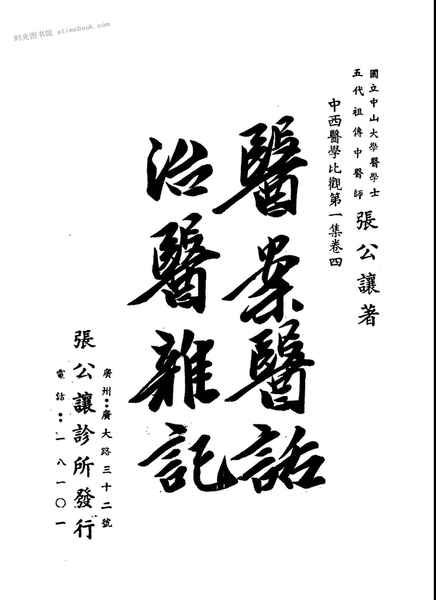 时光图书馆 stimebook.com
國立中山大學醫學士
五代祖傳中醫師
張公讓著
中西醫學比觀第一集卷四
醫案醫話
治醫雜記
廣州：廣大路三十二號
張公讓診所發行
電話：一八一〇一